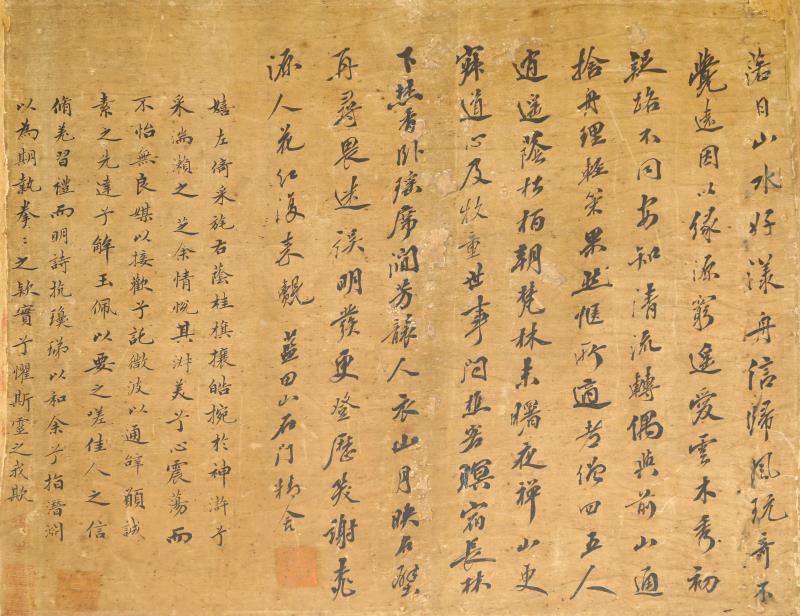 落日山水好漾舟信歸風玩奇不
覺遠因以緣源窮遙愛雲木秀初
疑路不同安知清流轉偶與前山通
捨舟理輕策果然愜所適老僧四五人
逍遥蔭松栢朝梵林未曙夜禅山更
寂道心及牧童世事问樵客暝宿長林
下焚香卧瑶席澗芳襲人衣山月映石壁
再尋畏迷誤明發更登歷笑謝桃
源人花红復来覿 蓝田山石门精舍
嬉左倚采旄右蔭桂旗攘皓捥於神滸兮
采湍瀨之芝余情悅其淑美兮心震蕩而
不怡無良媒以接歡兮託微波以通辞願誠
素之先達兮解玉佩以要之嗟佳人之信
脩羌習禮而明詩抗瓊珶以和余兮指潛淵
以為期執拳〻之欵實兮懼斯靈之我欺